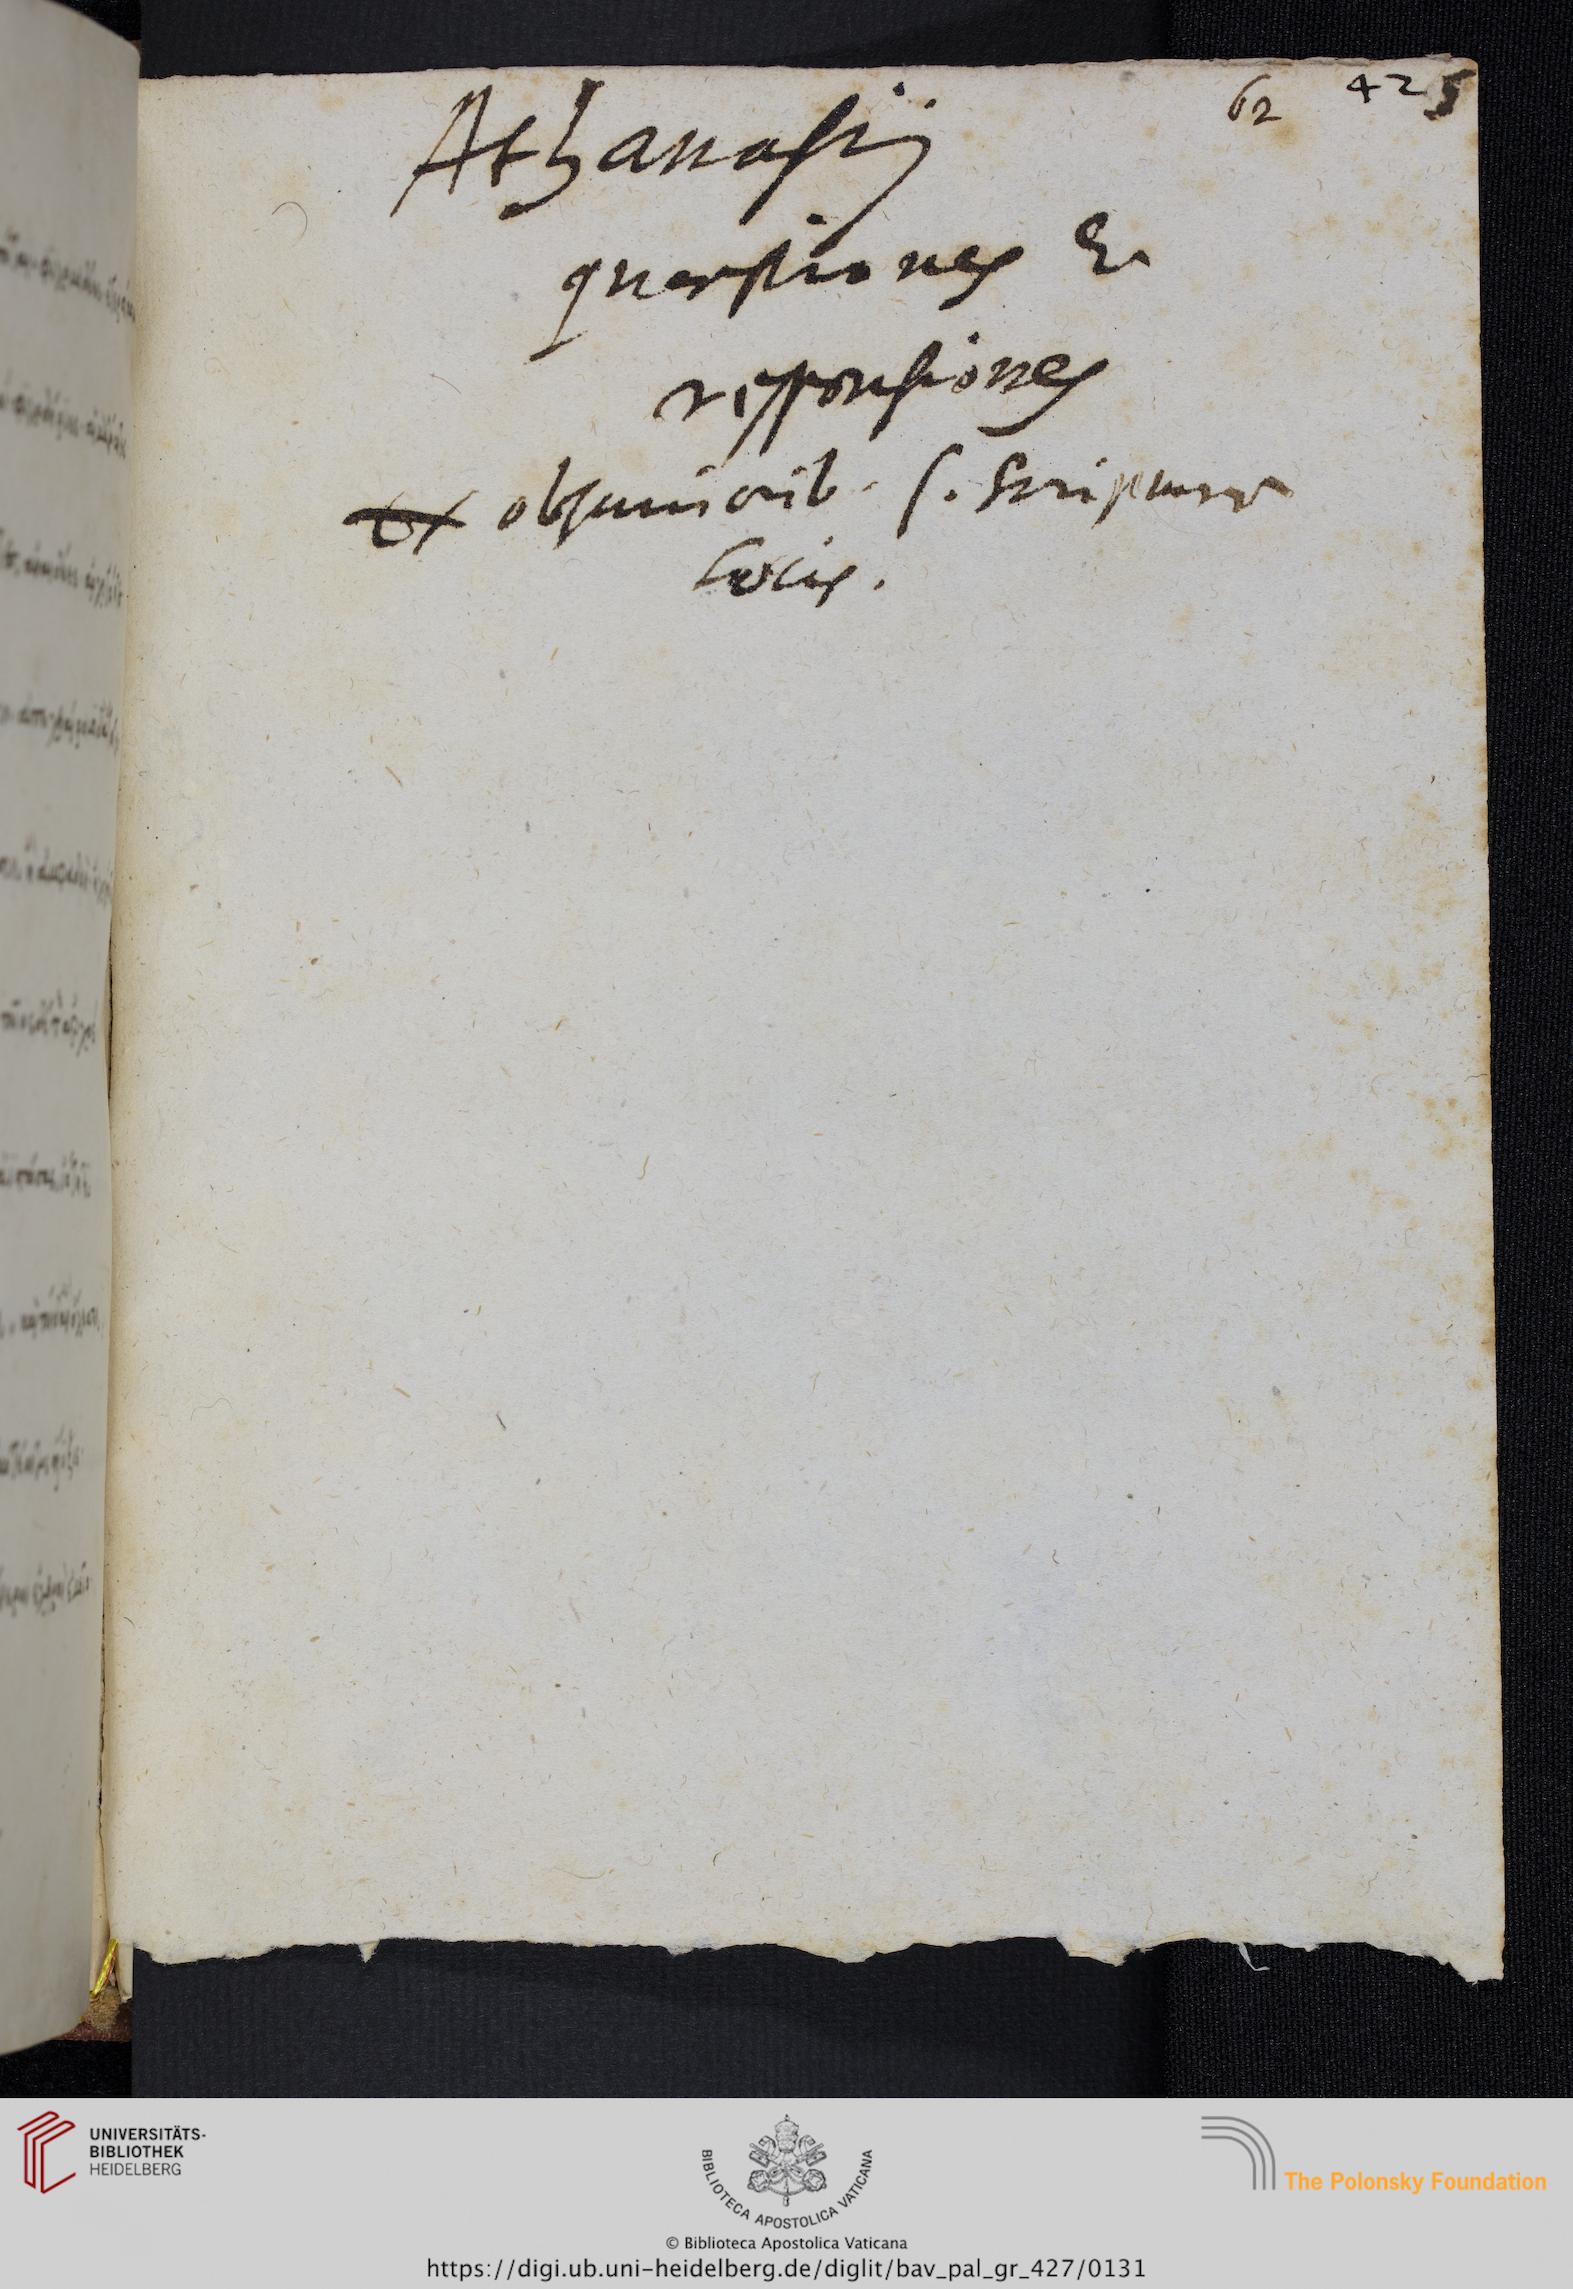 62 425
Athanasij
quaestiones &
responsiones
ex obscuriorib. S. Scripturae
locis.
UNIVERSITÄTS-
BIBLIOTHEK
HEIDELBERG
BIBLIOTECA APOSTOLICA VATICANA
The Polonsky Foundation
© Biblioteca Apostolica Vaticana
https://digi.ub.uni-heidelberg.de/diglit/bav_pal_gr_427/0131